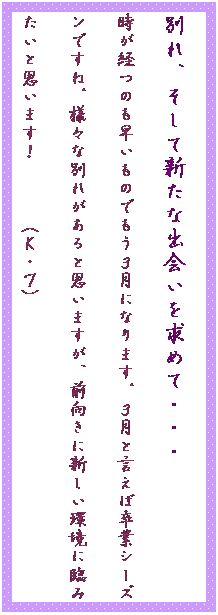 別れ、そして新たな出会いを求めて・・・
時が経つのも早いものでもう3月になります。3月と言えば卒業シーズ
ンですね。様々な別れがあると思いますが、前向きに新しい環境に臨み
たいと思います！　　（K・7）